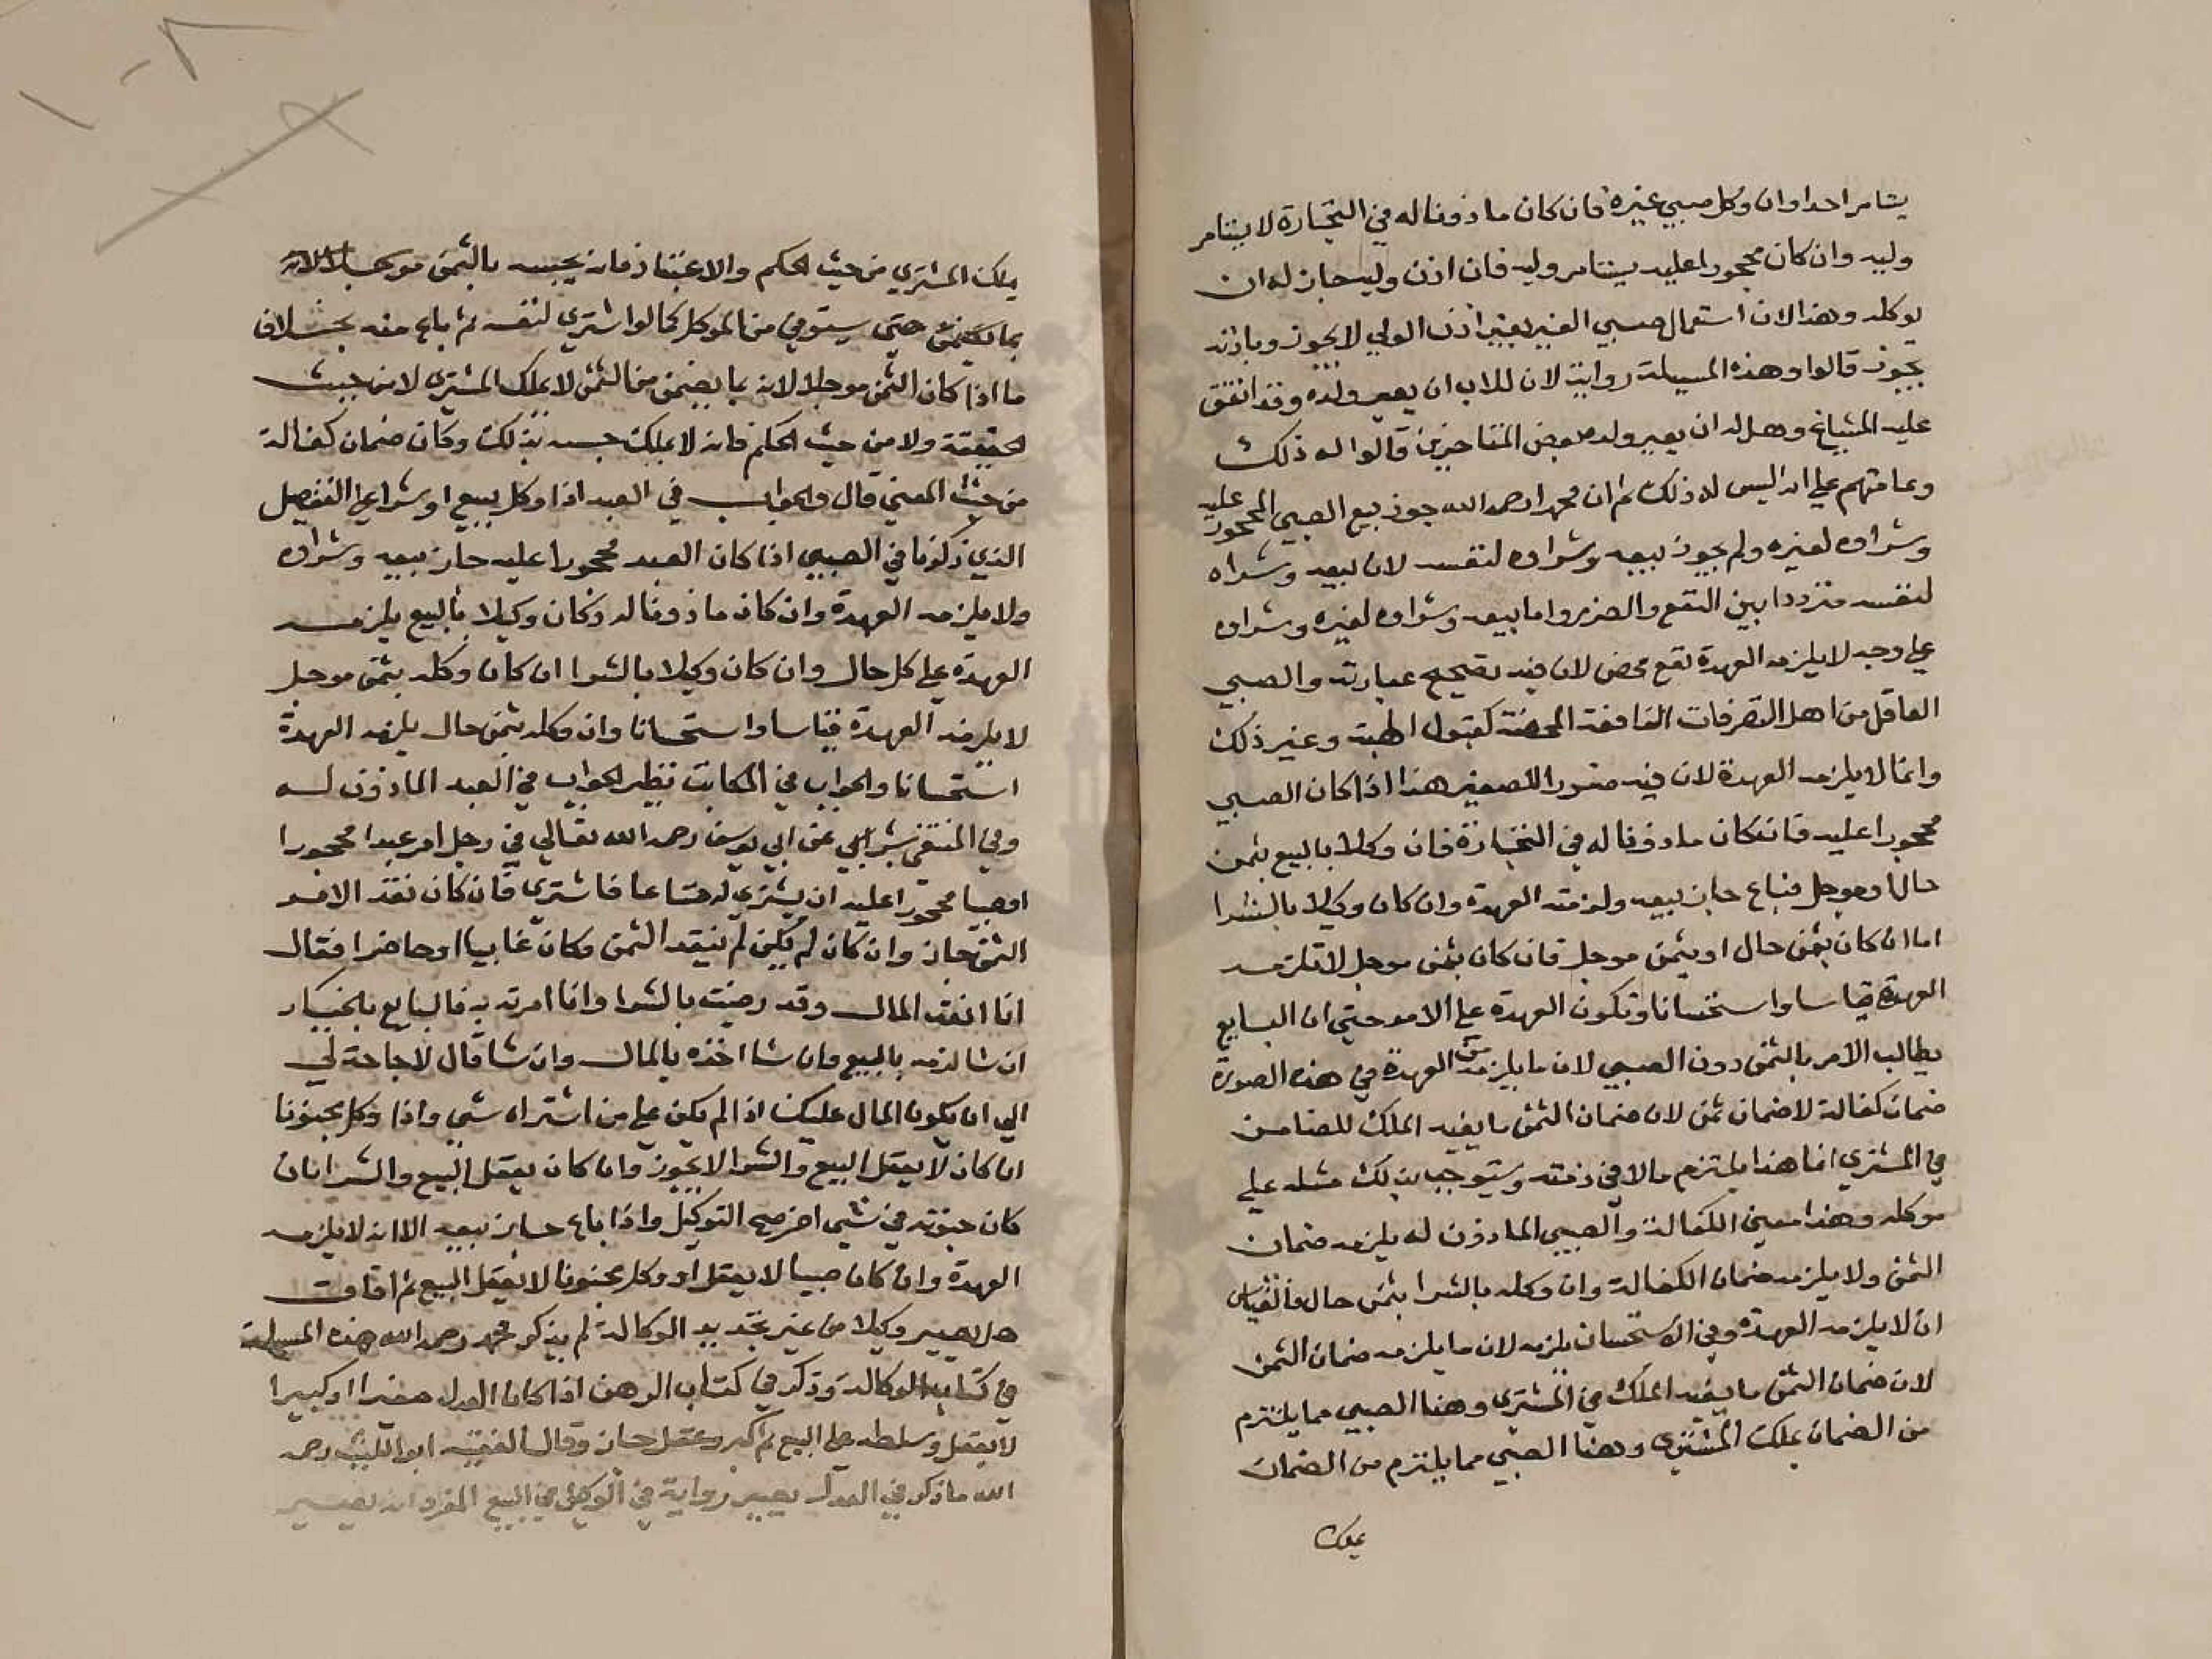 يستامر احدا وان وكل صبي غيره فان كان ماذونا له في التجارة لا يستامر
وليه وان كان محجورا عليه يستامر وليه فان اذن وليه جاز له ان
يوكله وهذا لان استعمال صبي الغير بغير اذن الولي لا يجوز وباذنه
يجوز قالوا وهذه المسيلة رواية لان للاب ان يعير ولده وقد اتفق
عليه المشايخ وهل له ان يعير ولده بعض المتاخرين قالوا له ذلك
وعامتهم علي انه ليس له ذلك ثم ان محمدا رحمه الله جوز بيع الصبي المحجور عليه
وشراوه لغيره ولم يجوز بيعه وشراوه لنفسه لان بيعه وشراه
لنفسه متردد ا بين النفع والضرر واما بيعه وشراوه لغيره وشراوه
علي وجه لا يلزمه العهدة نفع محض لان فيه تصحيح عبارته والصبي
العاقل من اهل التصرفات النافعة المحضة كقبول الهبة وغير ذلك
وانما لا يلزمه العهدة لان فيه ضررا للصغير هذا اذا كان الصبي
محجورا عليه فان كان ماذونا له في التجارة فان وكلا بالبيع بثمن
حال او موجل فباع جاز بيعه ولزمته العهدة وان كان وكيلا بالشرا
اما ان كان بثمن حال او بثمن موجل فان كان بثمن موجل لا تلزمه
العهدة قياسا واستحسانا وتكون العهدة علي الامر حتي ان البايع
يطالب الامر بالثمن دون الصبي لان ما يلزمه من العهدة في هذه الصورة
ضمان كفالة لا ضمان ثمن لان ضمان الثمن ما يفيد الملك للضامن
في المشتري انما هذا يلتزم مالا في ذمته ويستوجب بذلك مثله علي
موكله وهذا معني الكفالة والصبي الماذون له يلزمه ضمان
الثمن ولا يلزمه ضمان الكفالة وان وكله بالشرا بثمن حال فالقياس
ان لا يلزمه العهدة وفي الاستحسان يلزمه لان ما يلزمه ضمان الثمن
لان ضمان الثمن ما يفيد الملك في المشتري وهنا الصبي مما يلتزم
من الضمان يملك المشتري وهنا الصبي مما يلتزم من الضمان
يملك
يملك المشتري من حيث الحكم والاعتبار فانه يحبسه بالثمن
بما يضمن حتي يستوفي من الموكل كما لو اشتري لنفسه ثم باع منه بخلاف
ما اذا كان الثمن موجلا لانه بما يضمن من الثمن لا يملك المشتري لا من حيث
الحقيقة ولا من حيث الحكم فانه لا يملك حبسه بذلك وكان ضمان كفالة
من حيث المعني قال والجواب في العبد اذا وكل ببيع او شرا علي التفصيل
الذي ذكرنا في الصبي اذا كان العبد محجورا عليه جاز بيعه وشراوه
ولا يلزمه العهدة وان كان ماذونا له وكان وكيلا بالبيع يلزمه
العهدة علي كل حال وان كان وكيلا بالشرا ان كان وكله بثمن موجل
لا يلزمه العهدة قياسا واستحسانا وان وكله بثمن حال يلزمه العهدة
استحسانا والجواب في المكاتب نظير الجواب في العبد الماذون له
وفي المنتقي بشر عن ابي يوسف رحمه الله تعالي في رجل امر عبدا محجورا
او صبيا محجورا عليه ان يشتري له متاعا فاشتري فان كان نقد الامر
الثمن جاز وان كان لم يكن لم ينقد الثمن وكان غايبا او حاضرا فقال
انا انقد المال وقد رضيت بالشرا وانا امرته به فالبايع بالخيار
ان شا لزمه بالبيع وان شا اخذه بالمال وان شا قال لا حاجة لي
الي ان يكون المال عليك اذا لم يكن علي من اشتراه شي واذا وكل مجنونا
ان كان لا يعقل البيع والشرا لا يجوز وان كان يعقل البيع والشرا بان
كان جنونه في شي اخر صح التوكيل واذا باع جاز بيعه الا انه لا يلزمه
العهدة وان كان صبيا لا يعقل او وكل مجنونا لا يعقل البيع ثم افاق
هل يصير وكيلا من غير تجديد الوكالة لم يذكر محمد رحمه الله هذه المسيلة
في كتاب الوكالة وذكر في كتاب الرهن اذا كان العدل صغيرا او كبيرا
لا يعقل وسلطه علي البيع ثم اكبر وعقل جاز وقال الفقيه ابو الليث رحمه
الله ما ذكر في العدل يصير رواية في الوكيل في البيع المفرد انه يصير